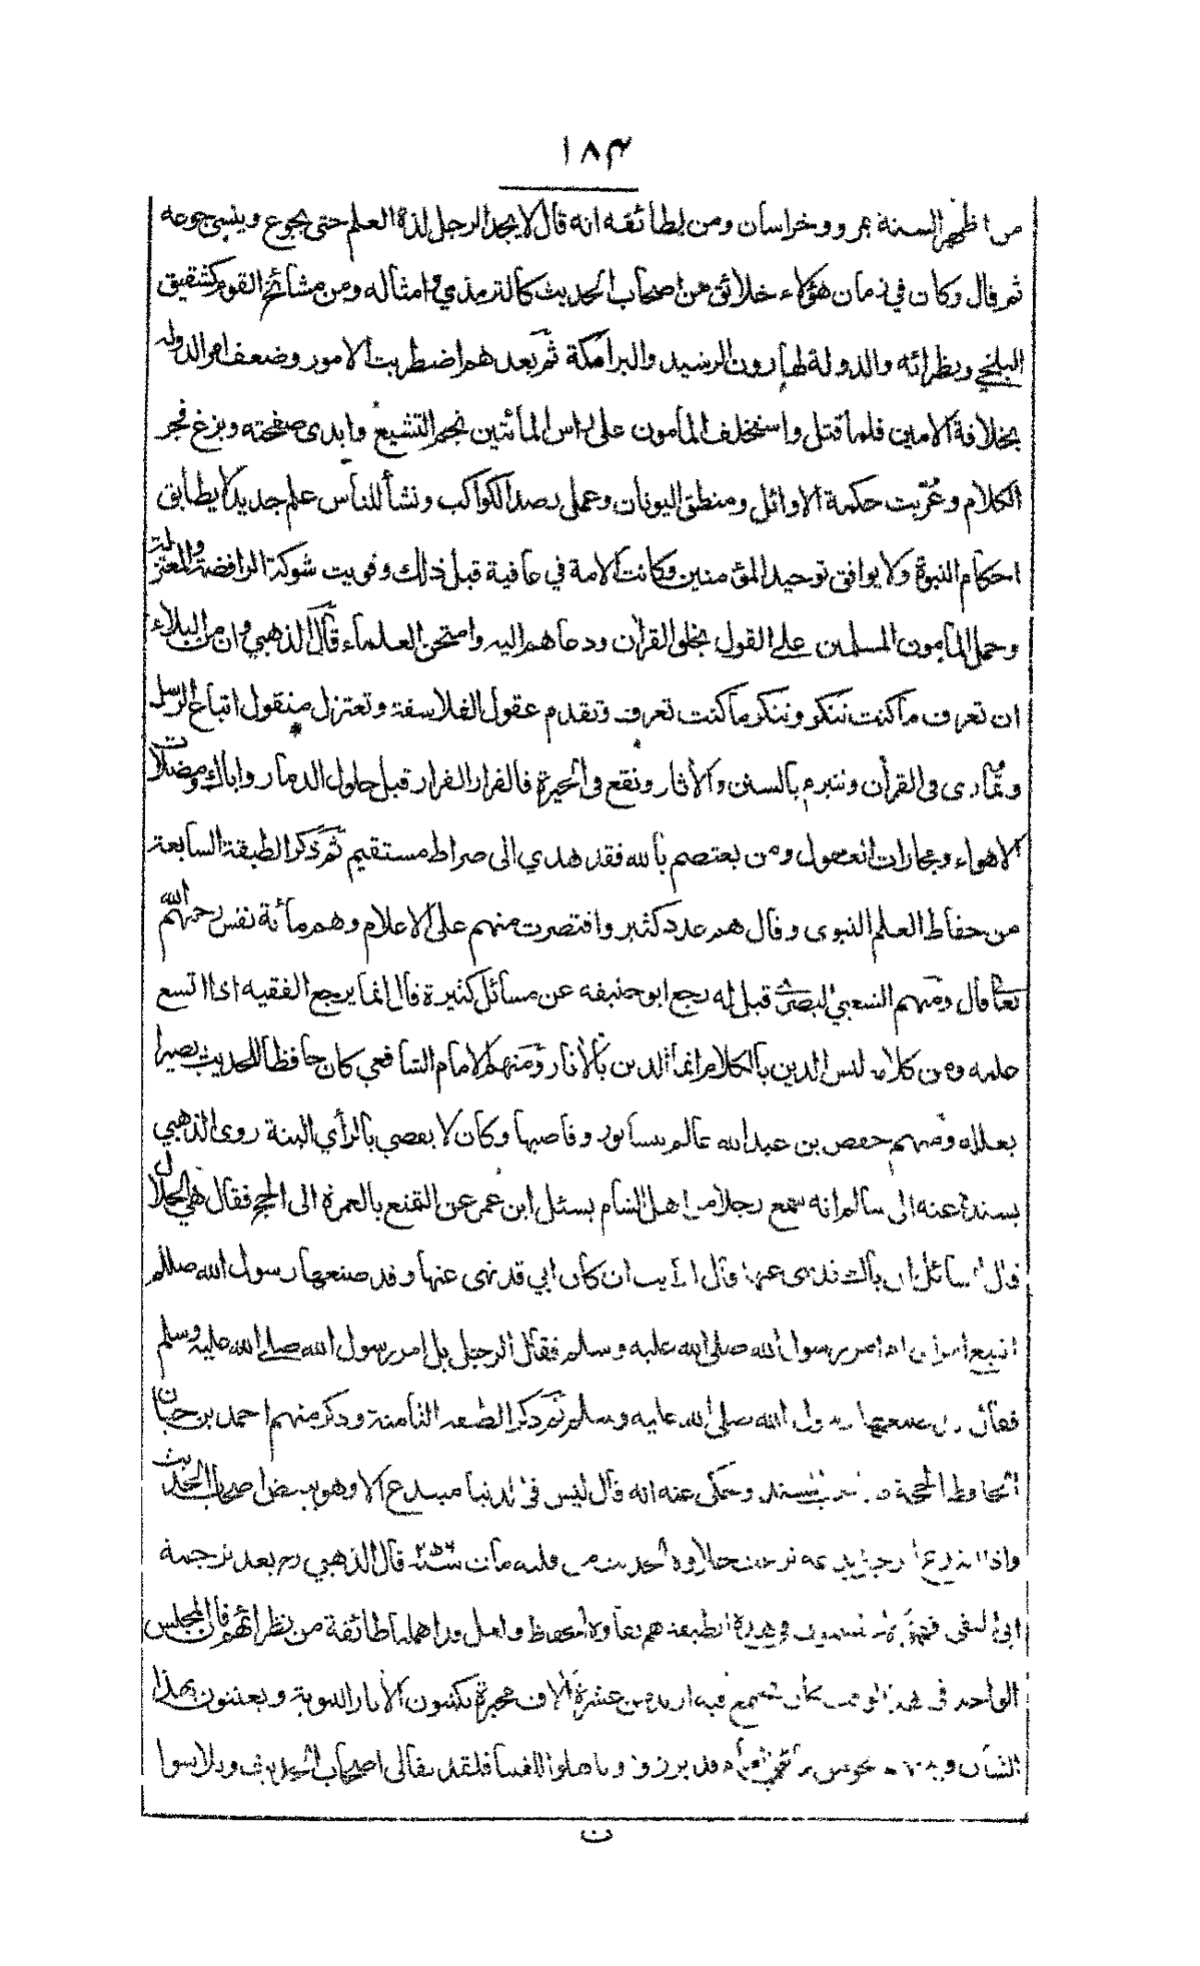 ١٨٤
من اظهر السنة بمرو وخراسان ومن لطائفه انه قال لا يجد الرجل لذة العلم حتى يجوع وينسى جوعه
ثم قال وكان في زمان هؤلاء خلائق من اصحاب الحديث كالترمذي وامثاله ومن مشائخ القوم كشقيق
البلخي ونظرائه والدولة لهارون الرشيد والبرامكة ثم بعدهم اضطربت الامور وضعف امر الدولة
بخلافة الامين فلما قتل واستخلف المأمون على راس المأئتين نجم التشيع وابدى صفحته وبزغ فجر
الكلام وعُرّبت حكمة الاوائل ومنطق اليونان وعمل رصد الكواكب ونشأ للناس علم جديد لا يطابق
احكام النبوة ولا يوافق توحيد المؤمنين وكانت الامة في عافية قبل ذلك وقويت شوكة الرافضة والمعتزلة
وحمل المأمون المسلمين على القول بخلق القرآن ودعاهم اليه وامتحن العلماء قال الذهبي وان من البلاء
ان تعرف ما كنت تنكر وتنكر ما كنت تعرف وتقدم عقول الفلاسفة وتعتزل منقول اتباع الرسل
وتمارى في القرآن وتتبرم بالسنن والآثار وتقع في الحيرة فالفرار الفرار قبل حلول الدمار واياك ومضلات
الاهواء ومجارات العقول ومن يعتصم بالله فقد هدي الى صراط مستقيم ثم ذكر الطبقة السابعة
من حفاظ العلم النبوى وقال هم عدد كثير واقتصرت منهم على الاعلام وهم مأئة نفس رحمهم الله
تعا قال ومنهم الشعبي البصري قيل له رجع ابو حنيفه عن مسائل كثيرة قال انما يرجع الفقيه اذا اتسع
علمه ومن كلامه ليس الدين بالكلام انما الدين بالآثار ومنهم الامام الشافعي كان حافظا للحديث بصيرا
بعلله ومنهم حفص بن عبد الله عالم نيسابور وقاضيها وكان لا يقضي بالرأي البتة روى الذهبي
بسنده عنه الى سالم انه سمع رجلا من اهل الشام يسئل ابن عمر عن التمتع بالعمرة الى الحج فقال هي حلال
قال السائل ان اباك قد نهى عنها قال ارأيت ان كان ابي قد نهى عنها وقد صنعها رسول الله صللم
اتبع ام امر رسول الله صلى الله عليه وسلم فقال الرجل بل امر رسول الله صلى الله عليه وسلم
فقال صنعها رسول الله صلى الله عليه وسلم ثم ذكر الطبقه الثامنة وذكر منهم احمد بن حبان
الحافظ الحجة وحكى عنه انه قال ليس في الدنيا مبتدع الا وهو يبغض اصحاب الحديث
واذا ابتدع الرجل نزعت حلاوة الحديث من قلبه مات قال الذهبي رح بعد ترجمة
هذه الطبقة هم نقاوة الحفاظ ولعل قد اهملنا طائفة من نظرائهم فان المجلس
الواحد في هذا الوقت كان يجتمع فيه ازيد من عشرة آلاف محبرة يكتبون الآثار النبوية ويعتنون بهذا
الشان قد برزوا وتاهلوا للفتيا فلقد تفانى اصحاب الحديث وتلاشوا
ن